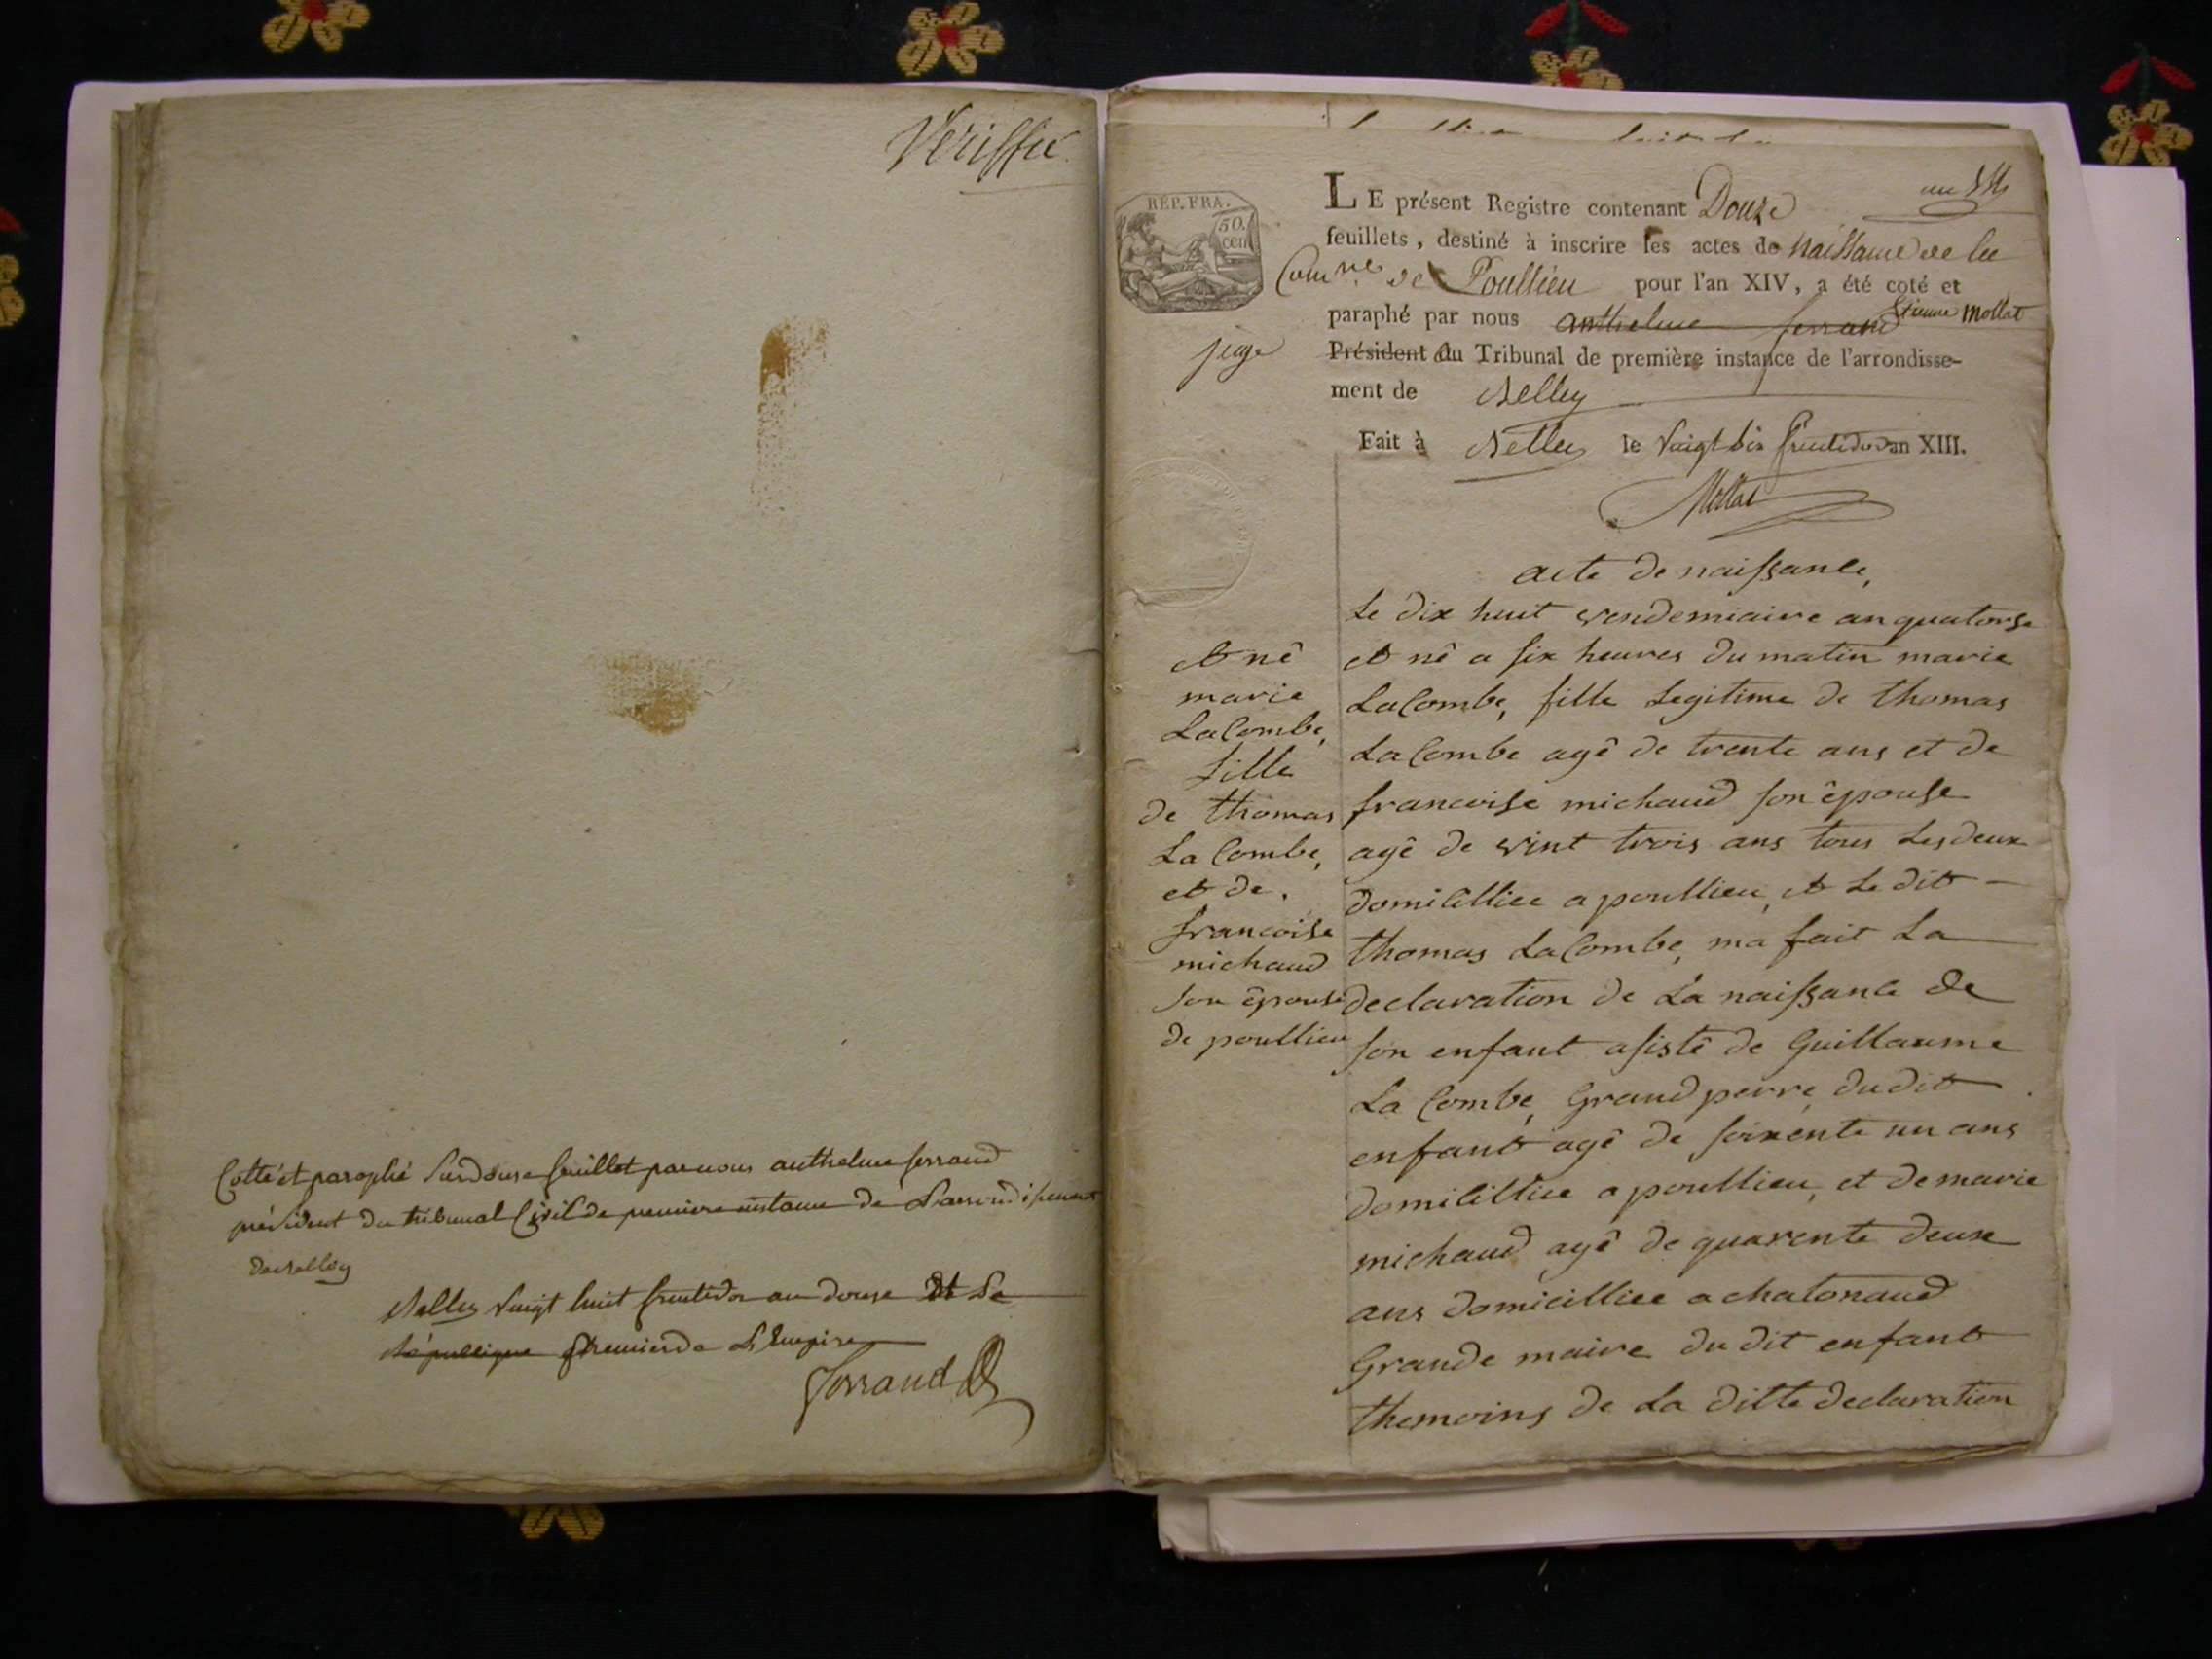 Veriffié
Cotté et paraphé sur douze feuillet par nous anthelme ferrand
président du tribunal Civil de premiere instance de L'arrondissement
de Belley
Belley vingt huit fructidor an douze et Le
Premier de L'Empire
Ferrand
REP. FRA.
50.
cen
LE présent Registre contenant Douze
feuillets, destiné à inscrire les actes de naissance de la
Comne de Poullieu pour l'an XIV, a été coté et
paraphé par nous anthelme ferrand Etienne Mollat
juge Président du Tribunal de première instance de l'arrondisse-
ment de Belley
Fait à Belley le vingt six fructidor an XIII.
Mollat
acte de naissance,
Le dix huit vendemiaire an quatorse
et nê a six heures du matin marie
LaCombe, fille Legitime de thomas
LaCombe agê de trente ans et de
francoise michaud son êpouse
agê de vint trois ans tous Les deux
domicilliee a poullieu, et Le dit
thomas LaCombe, ma fait La
declaration de La naissance de
son enfant asistê de Guillaume
La Combe, Grand perre, du dit
enfant agê de soixente un ans
domicilliee a poullieu, et de marie
michaud agê de quarente deux
ans domicilliee a chatonaud
Grande maire du dit enfant
themoins de La ditte declaration
et nê
marie
LaCombe,
fille
de thomas
La Combe,
et de.
francoise
michaud
son êpouse
de poullieu